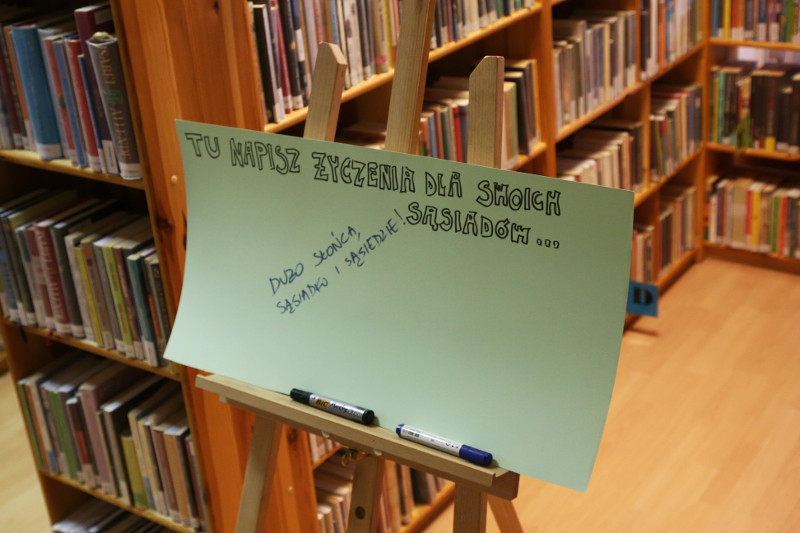 TU NAPISZ ŻYCZENIA DLA SWOICH
SĄSIADÓW...
DUŻO SŁOŃCA,
SĄSIADKO I SĄSIEDZIE!
D